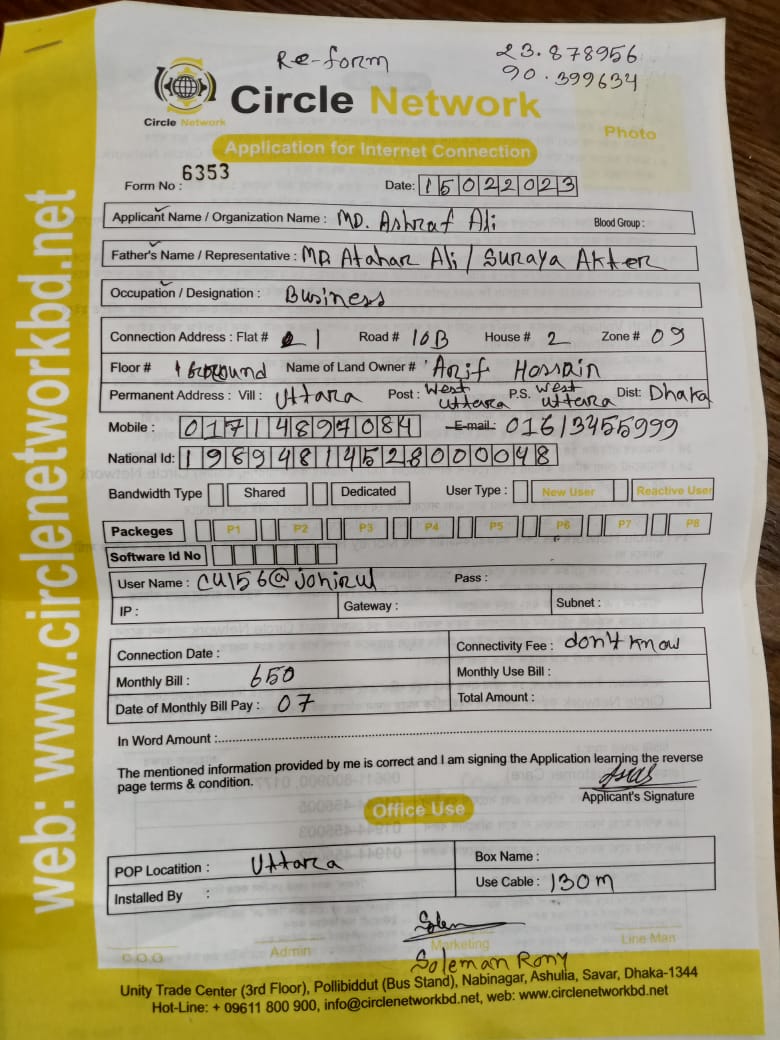 Re-form
23.878956
90.399634
Circle Network
Circle Network
Photo
Application for Internet Connection
Form No : 6353
Date: 15022023
Applicant Name / Organization Name : MD. Ashraf Ali Blood Group :
Father's Name / Representative : MD Atahar Ali / Suraya Akter
Occupation / Designation : Business
Connection Address : Flat # 1 Road # 10B House # 2 Zone # 09
Floor # Ground Name of Land Owner # Arif Hossain
Permanent Address : Vill : Uttara Post : West Uttara P.S. West Uttara Dist: Dhaka
Mobile : 01714897084 E-mail : 01613455999
National Id: 19694814528000048
Bandwidth Type Shared Dedicated User Type : New User Reactive User
Packeges P1 P2 P3 P4 P5 P6 P7 P8
Software Id No
User Name : CU156@johirul Pass :
IP : Gateway : Subnet :
Connection Date : Connectivity Fee : don't know
Monthly Bill : 650 Monthly Use Bill :
Date of Monthly Bill Pay : 07 Total Amount :
In Word Amount :
The mentioned information provided by me is correct and I am signing the Application learning the reverse
page terms & condition.
Applicant's Signature
Office Use
POP Locatition : Uttara Box Name :
Installed By : Use Cable : 130m
C.O.O Admin Marketing Line Man
Soleman Rony
Unity Trade Center (3rd Floor), Pollibiddut (Bus Stand), Nabinagar, Ashulia, Savar, Dhaka-1344
Hot-Line: + 09611 800 900, info@circlenetworkbd.net, web: www.circlenetworkbd.net
web: www.circlenetworkbd.net